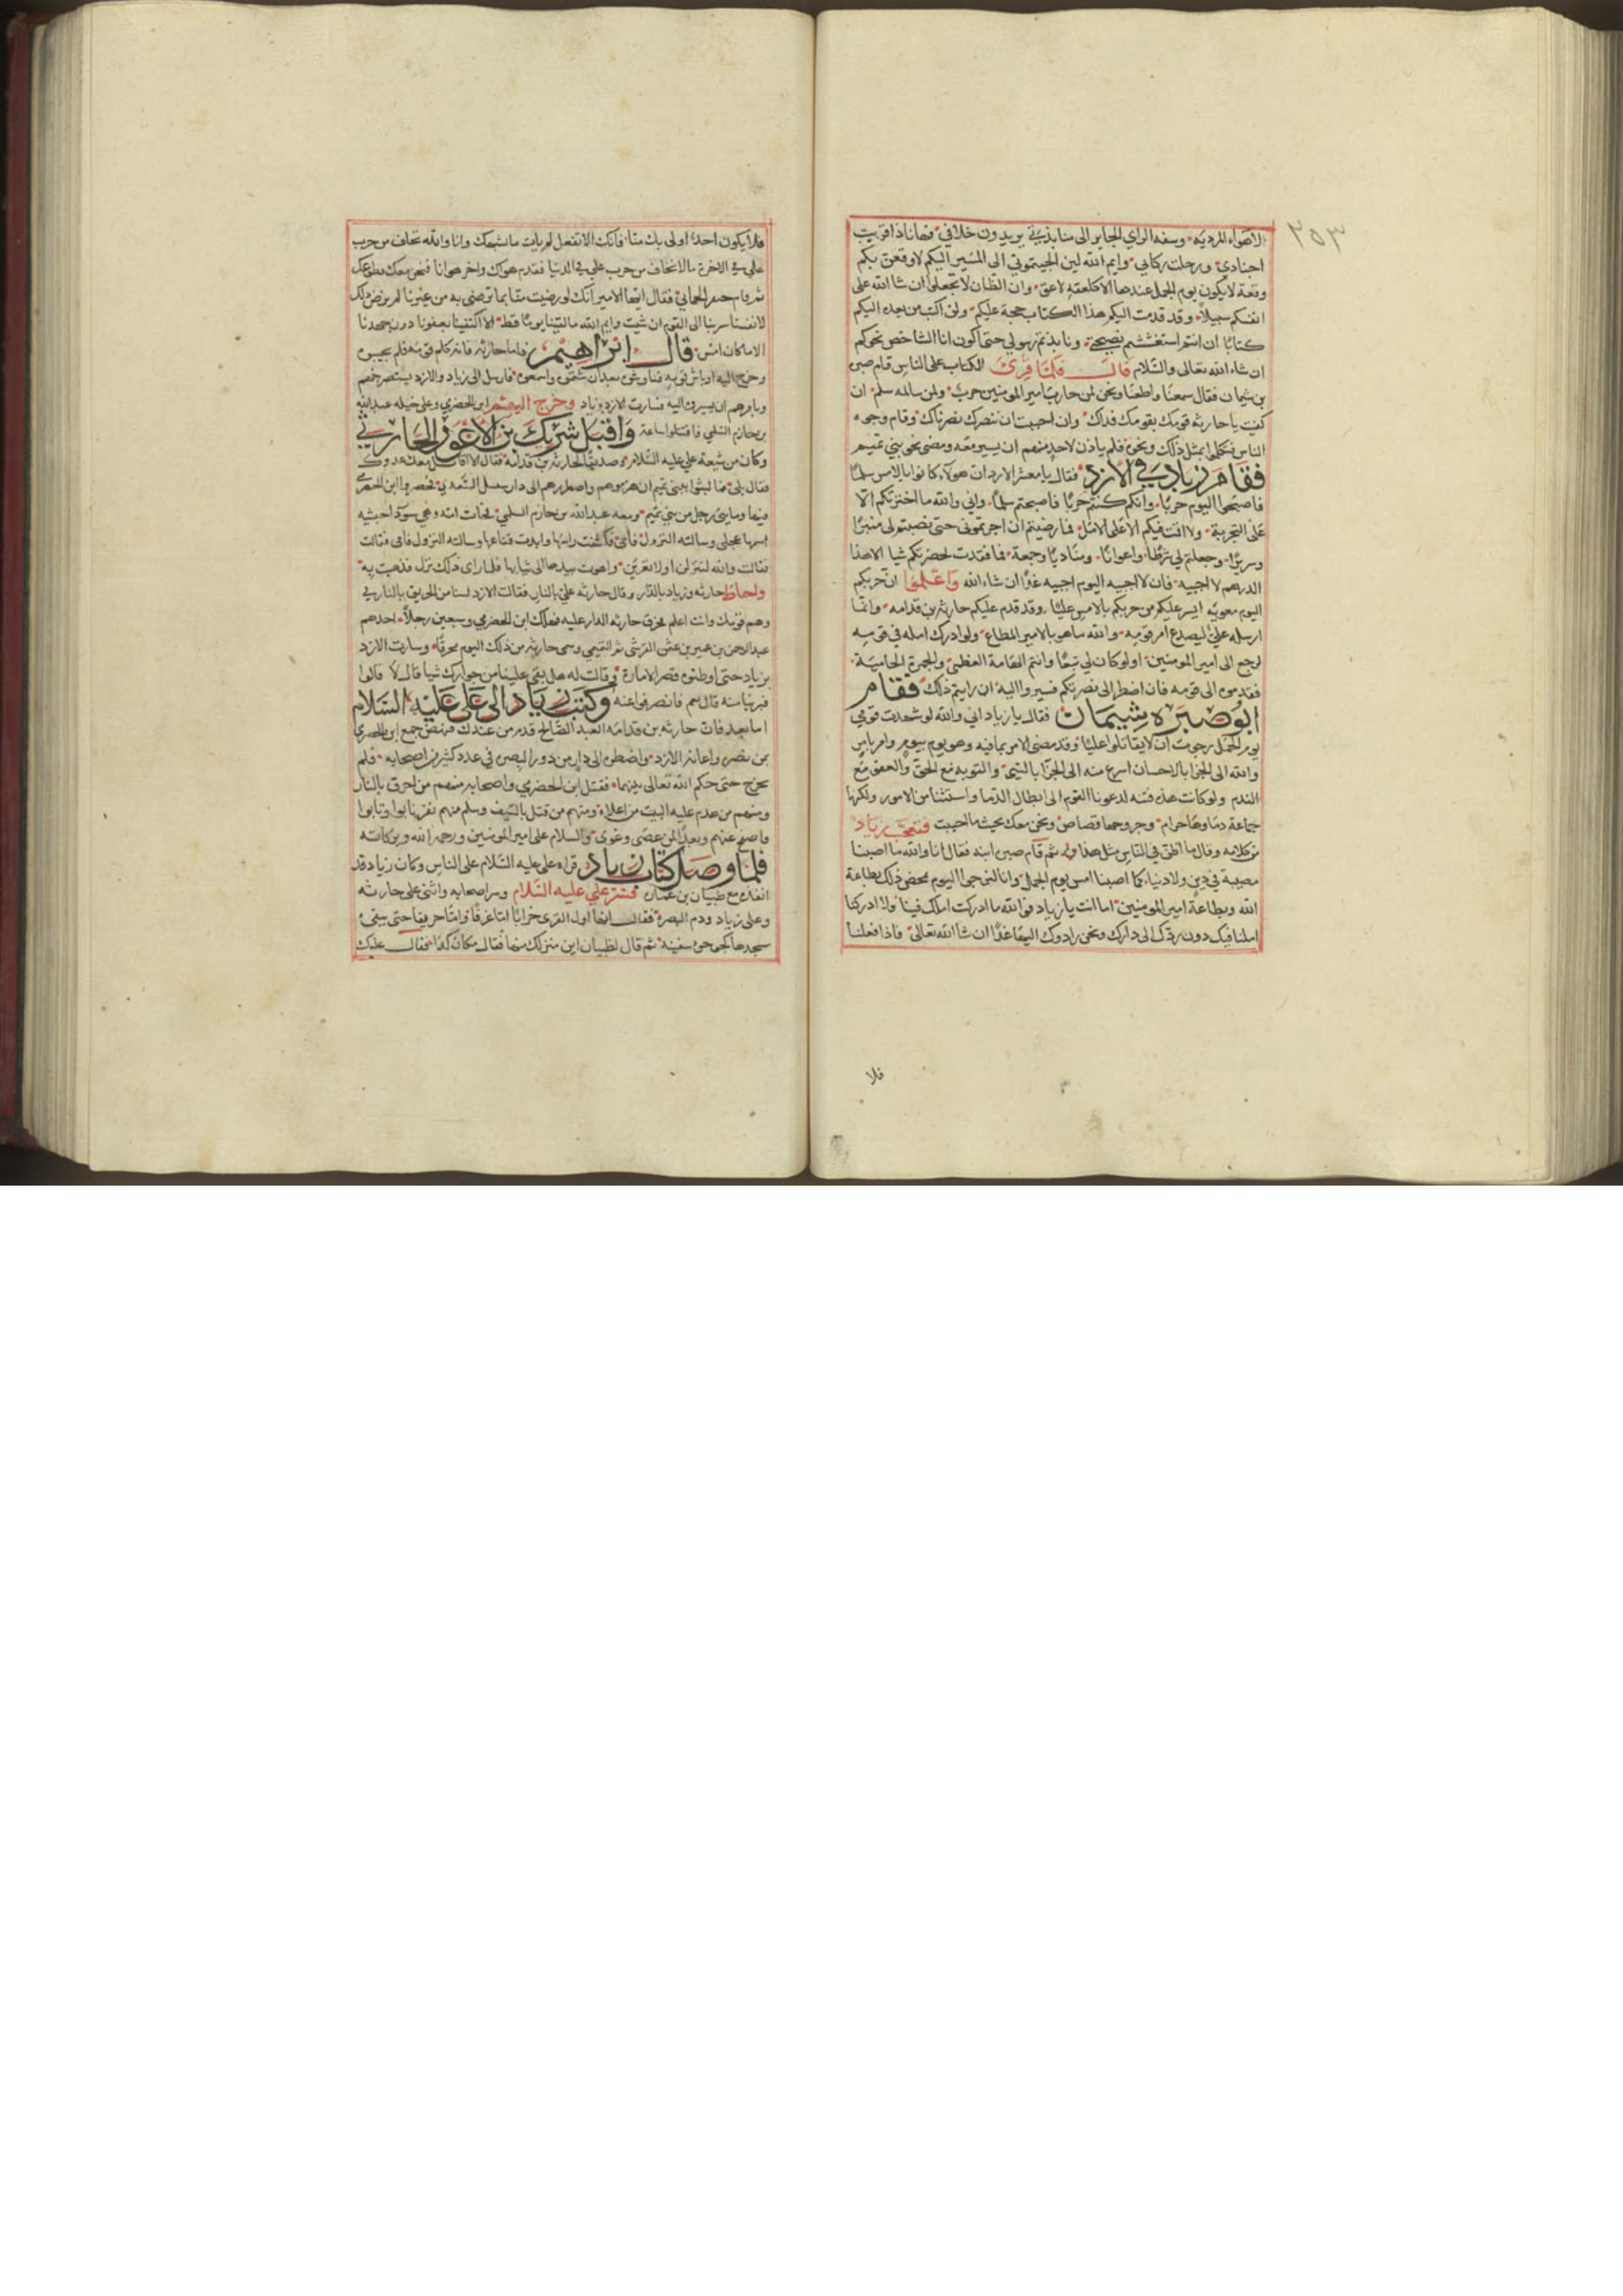 ٢٥٣
الاهواء المرديه وسفه الراي الجاير الى منابذتي يريدون خلافي فهانا ذا قربت
اجنادي ورحلت ركابي وايم الله لين الجيتموني الى المسير اليكم لاوقعن بكم
وقعة لا يكون يوم الجمل عندها الا كلعقة لاعق وان الظان لا تجعلوا ان شا الله على
انفسكم سبيلا وقد قدمت اليكم هذا الكتاب حجة عليكم ولن اكتب من بعده اليكم
كتابا ان انتم استغششتم نصيحتي ونابذتم رسولي حتى اكون انا الشاخص نحوكم
ان شاء الله تعالى والسلام قال فلما قرئ الكتاب على الناس قام صبره
بن شيمان فقال سمعنا واطعنا ونحن لمن حارب امير المومنين حرب ولمن سالمه سلم ان
كفيت يا حارثه قومك بقومك فداك وان احببت ان ننصرك نصرناك وقام وجوه
الناس فتكلموا بمثل ذلك ونحوه فلم ياذن لاحد منهم ان يسير معه ومضى نحو بني تميم
فقام زياد في الازد فقال يا معشر الازد ان هولاء كانوا بالامس سلما
فاصبحوا اليوم حربا وانكم كنتم حربا فاصبحتم سلما واني والله ما اخترتكم الا
على التجربة ولا اقمت فيكم الا على الامل فما رضيتم ان اجرتموني حتى نصبتم لي منبرا
وسريرا وجعلتم لي شرطا واعوانا ومناديا وجمعة فما فقدت لحضرتكم شيا الا هذا
الدرهم لا اجبيه فان لا اجبيه اليوم اجبيه غدا ان شاء الله واعلموا ان حربكم
اليوم معويه ايسر عليكم من حربكم بالامس عليا وقد قدم عليكم حارثه بن قدامه وانما
ارسله علي ليصدع امر قومه والله ما هو بالامير المطاع ولو ادرك امله في قومه
لرجع الى امير المومنين او لو كان لي تبعا وانتم الهامة العظمى والجمرة الحامية
فقدموه الى قومه فان اضطر الى نصرتكم فسيروا اليه ان رايتم ذلك فقام
ابو صبره شيمان فقال يا زياد اني والله لو شهدت قومي
يوم الجمل رجوت ان لا يقاتلوا عليا وقد مضى الامر بما فيه وهو يوم بيوم وامر بامر
والله الى الجزا بالاحسان اسرع منه الى الجزا بالسيئ والتوبه مع الحق والعفو مع
الندم ولو كانت هذه فتنه لدعونا القوم الى ابطال الدما واستئناف الامور ولكنها
جماعة دماوها حرام وجروحها قصاص ونحن معك بحيث ما احببت فتعجب زياد
من كلامه وقال ما اظن في الناس مثل هذا ثم قام صبره ابنه فقال انا والله ما اصبنا
مصيبة في دين ولا دنيا كما اصبنا امس يوم الجمل وانا لنرجوا اليوم محض ذلك بطاعة
الله وبطاعة امير المومنين اما انت يا زياد فوالله ما ادركت املك فينا ولا ادركنا
املنا فيك دون ردك الى دارك ونحن رادوك اليها غدا ان شا الله تعالى فاذا فعلنا
فلا
فلا يكون احد اولى بك منا فانك الا تفعل لم يات ما يشبهك وانا والله نخاف من حرب
علي في الاخرة ما لا نخاف من حرب علي في الدنيا فقدم هواك واخر هوانا فنحن معك وطوعك
ثم قام الحماني فقال ايها الامير انك لو رضيت منا بما ترضى به من غيرنا لم نرض ذلك
لانفسنا سر بنا الى القوم ان شيت وايم الله ما لقينا يوما قط الا اكتفينا بعفونا دون جهدنا
الا ما كان امس قال ابراهيم فاما حارثه فانه كلم قومه فلم يجيبوه
وخرج اليه اوباش قومه فناوشوه بعد ان شتموه واسمعوه فارسل الى زياد والازد يستصرخهم
ويامرهم ان يسيروا اليه فسارت الازد بزياد وخرج اليهم ابن الحضرمي وعلى خيله عبد الله
بن حازم السلمي فاقتتلوا ساعة واقبل شريك بن الاعور الحارثي
وكان من شيعة علي عليه السلام وصديقا لحارثه بن قدامه فقال الا اقاتل معك عدوك
فقال بلى فما لبثوا ببني تميم ان هزموهم واضطروهم الى دار سبيل السعدي فحصروا ابن الحضرمي
فيها ومايتي رجل من بني تميم ومعه عبد الله بن حازم السلمي فجات امه وهي سودا حبشيه
اسمها عجلى وسالته النزول فابى فكشفت راسها وابدت قناعها وسالته النزول فابى فقالت
فقالت والله لتنزلن او لاتعرين واهوت بيدها الى ثيابها فلما راى ذلك نزل فذهبت به
واحاط حارثه وزياد بالدار وقال حارثه علي بالنار فقالت الازد لسنا من الحريق بالنار في
وهم قومك وانت اعلم فحرق حارثه الدار عليه فهلك ابن الحضرمي وسبعين رجلا احدهم
عبد الرحمن بن عمير بن عثمن القرشي ثم التيمي وسمي حارثه من ذلك اليوم محرقا وسارت الازد
بزياد حتى اوطنوه قصر الامارة وقالت له هل بقي علينا من جوارك شيا قال لا قالوا
فبرينا منه قال نعم فانصرفوا عنه وكتب زياد الى علي عليه السلام
اما بعد فان حارثه بن قدامه العبد الصالح قدم من عندك فناهض جمع ابن الحضرمي
بمن نصره واعانه الازد واضطره الى دار من دور البصره في عدد كثير من اصحابه فلم
يخرج حتى حكم الله تعالى بينهما فقتل ابن الحضرمي واصحابه منهم من احرق بالنار
ومنهم من هدم عليه البيت من اعلاه ومنهم من قتل بالسيف وسلم منهم نفر نابوا وتابوا
فاصفح عنهم وبعدا لمن عصى وغوى والسلام على امير المومنين ورحمه الله وبركاته
فلما وصل كتاب زياد قراه علي عليه السلام على الناس وكان زياد قد
انفذه مع ظبيان بن عماره فسر علي عليه السلام وسر اصحابه واثنى على حارثه
وعلى زياد وذم البصره فقال انها اول القرى خرابا اما غرقا واما حريقا حتى يبقى
مسجدها كجوجوء سفينة ثم قال لظبيان اين منزلك منها فقال مكان كذا فقال عليك